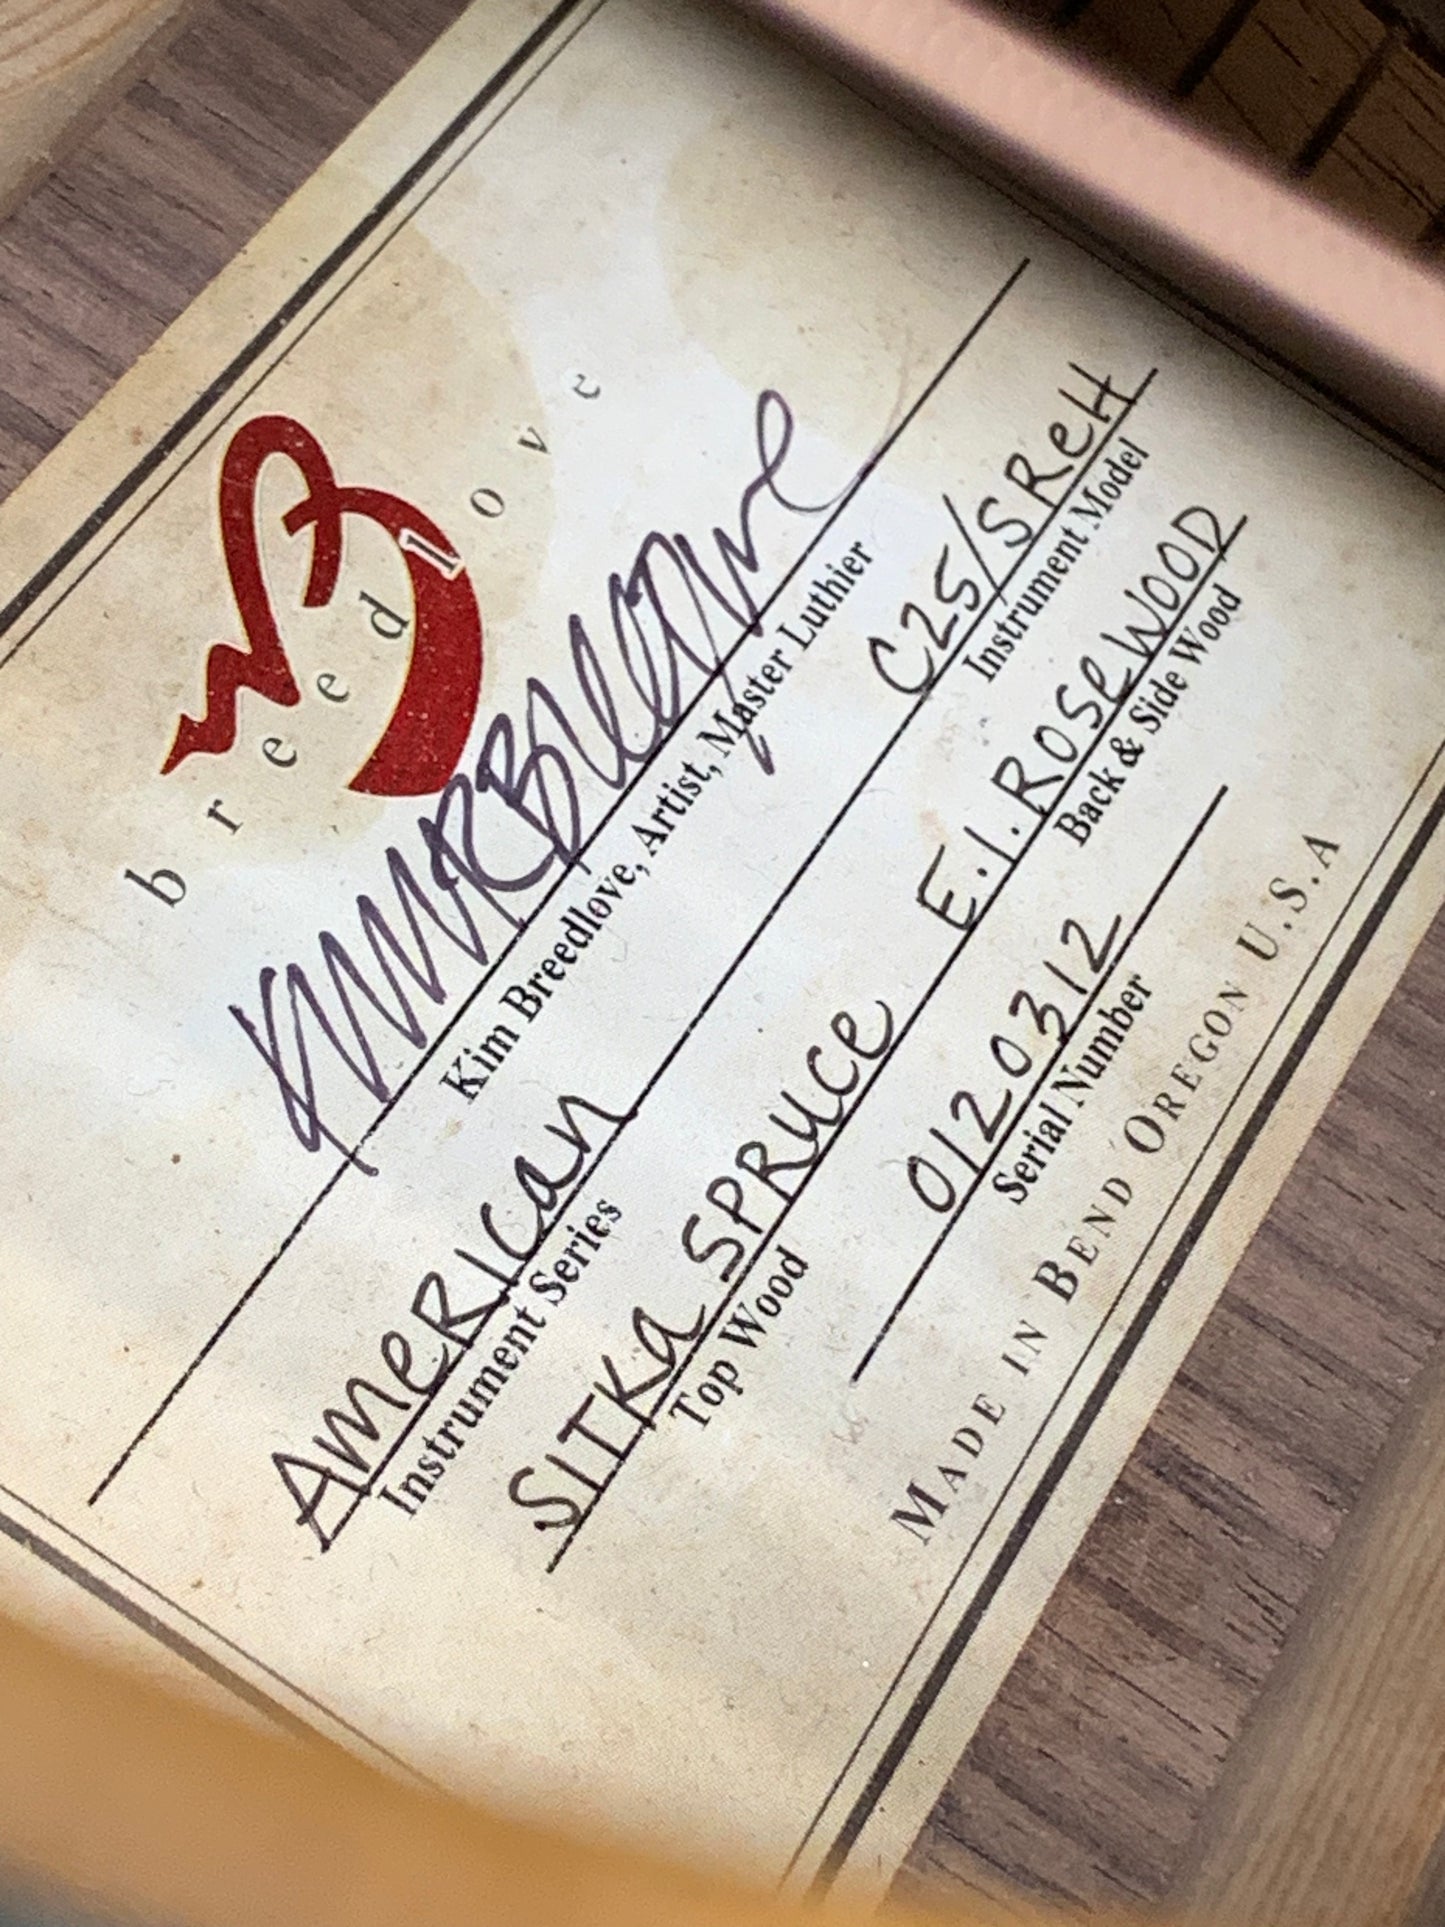 breedlove
Kim Breedlove
Kim Breedlove, Artist, Master Luthier
American C25/SReH
Instrument Series Instrument Model
Sitka Spruce E.I. Rosewood
Top Wood Back & Side Wood
0120312
Serial Number
Made in Bend Oregon U.S.A